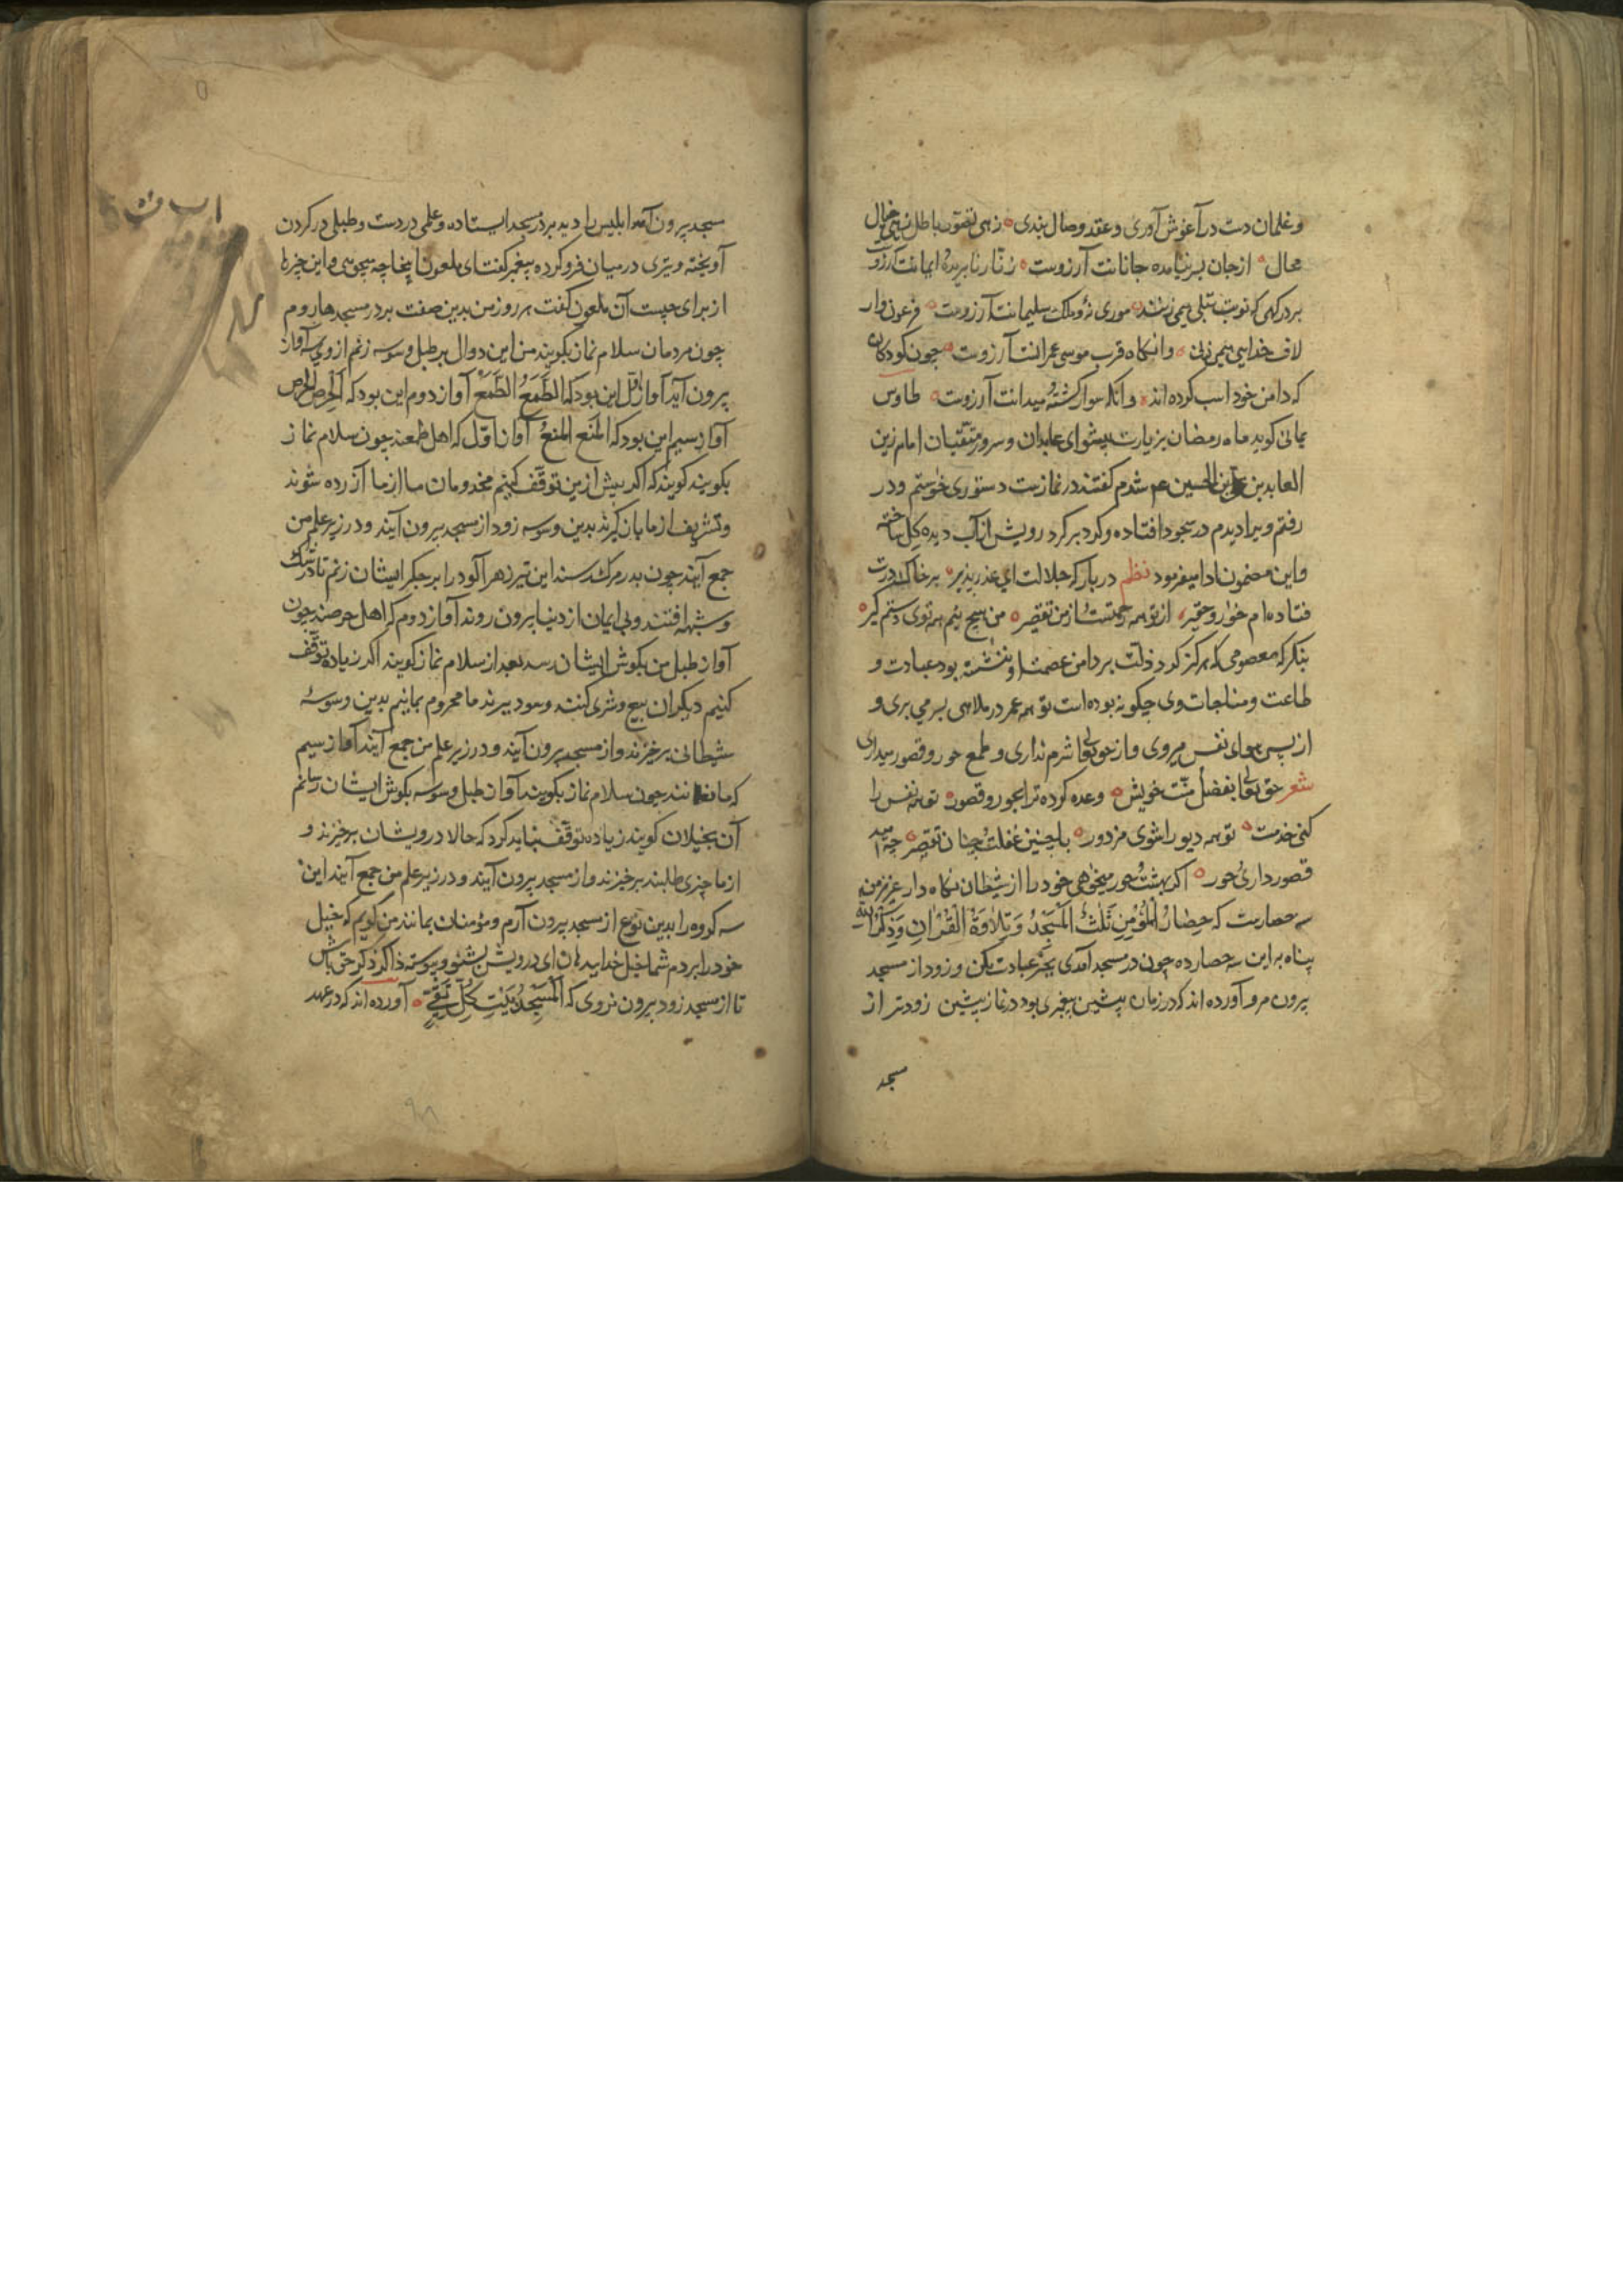 و غلمان دست در آغوش آوری و عقد وصال بندی زهی تصور باطل زهی خیال
محال از جان برنیامده جانانت آرزوست زنار نابریده ایمانت آرزوست
بر درگهی که نوبت تبلی همی زنند موری نه و ملک سلیمانت آرزوست فرعون وار
لاف خدایی همی زنی وانگاه قرب موسی عمرانت آرزوست چون کودکان
که دامن خود اسب کرده اند وانگه سوار گشته میدانت آرزوست طاوس
یمانی گوید ماه رمضان بزیارت پیشوای عابدان و سرور متقیان امام زین
العابدین علی بن الحسین عم شدم گفتند در نمازست دستوری خواستم و در
رفتم ویرا دیدم در سجود افتاده و گرد بر گرد رویش از آب دیده گل ساخته
و این مضمون ادا میفرمود نظم در بارگه جلالت ای عذر پذیر بر خاک درت
فتاده ام خوار و حقیر از تو همه رحمتست از من تقصیر من هیچ نیم همه توی دستم گیر
بنگر که معصومی که هرگز گرد ذلت بر دامن عصمت او ننشسته بود عبادت و
طاعت و مناجات وی چگونه بوده است تو همه عمر در ملاهی بسر می بری و
از پس هوای نفس میروی و از حق تعالی شرم نداری و طمع حور و قصور میداری
شعر حق تعالی بفضل منت خویش وعده کرده ترا بحور و قصور تو همه نفس را
کنی خدمت تو همه دیو را شوی مزدور با چنین غفلت و چنان تقصیر چه امید
قصور داری حور اگر بهشت و حور میخواهی خود را از شیطان نگاه دار عزیز من
سه حصارست که حصار المؤمن ثلث المسجد و تلاوة القرآن و ذکر الله
پناه به این سه حصار ده چون در مسجد آمدی بجز عبادت مکن و زود از مسجد
بیرون مرو آورده اند که در زمان پیشین پیغمبری بود در نماز پیشین زودتر از
مسجد
مسجد بیرون آمد ابلیس را دید بر در مسجد ایستاده و علمی در دست و طبلی در گردن
آویخته و تیری در میان فرو کرده پیغمبر گفت ای ملعون اینجا چه میجویی و این چیزها
از برای چیست آن ملعون گفت هر روز من بدین صفت بر در مسجدها روم
چون مردمان سلام نماز بگویند من این دوال بر طبل وسوسه زنم از وی سه آواز
بیرون آید آواز اول این بود که الطمع الطمع آواز دوم این بود که الحرص الحرص
آواز سیم این بود که المنع المنع آواز اول که اهل طمعند چون سلام نماز
بگویند گویند که اگر بیش ازین توقف کنیم مخدومان ما از ما آزرده شوند
و تشریف از ما باز گیرند بدین وسوسه زود از مسجد بیرون آیند و در زیر علم من
جمع آیند چون بدر مرگ رسند این تیر زهر آلود را بر جگر ایشان زنم تا در شک
و شبهه افتند و بی ایمان از دنیا بیرون روند آواز دوم که اهل حرصند چون
آواز طبل من بگوش ایشان رسد بعد از سلام نماز گویند اگر زیاده توقف
کنیم دیگران بیع و شری کنند و سود ببرند ما محروم بمانیم بدین وسوسۀ
شیطانی برخیزند و از مسجد بیرون آیند و در زیر علم من جمع آیند آواز سیم
که مانعانند چون سلام نماز بگویند آواز طبل وسوسه بگوش ایشان رسانم
آن بخیلان گویند زیاده توقف نباید کرد که حالا درویشان برخیزند و
از ما چیزی طلبند برخیزند و از مسجد بیرون آیند و در زیر علم من جمع آیند این
سه گروه را بدین نوع از مسجد بیرون آرم و مؤمنان بمانند من گویم که خیل
خود را بردم شما خیل خدایید هان ای درویش بشنو و پیوسته ذاکر ذکر حق باش
تا از مسجد زود بیرون نروی که المسجد بیت کل تقی آورده اند که در عهد